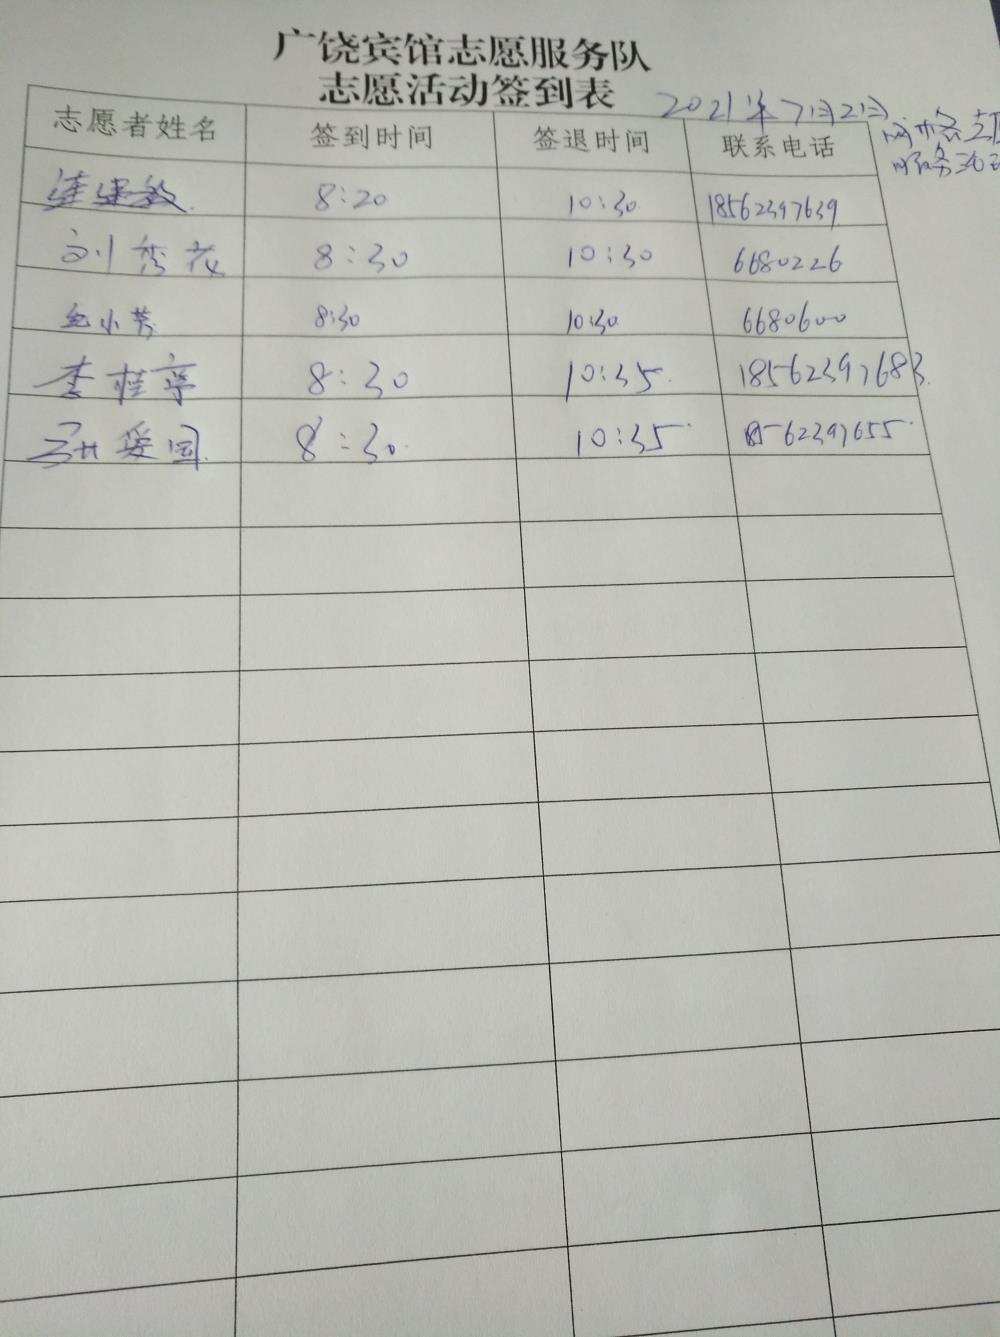 广饶宾馆志愿服务队
志愿活动签到表
2021年7月2日
志愿者姓名 签到时间 签退时间 联系电话
服务活动
8:20 10:30 18562397639
刘秀花 8:30 10:30 6680226
小芳 8:30 10:30 6680600
李桂亭 8:30 10:35 18562397683
爱国 8:30 10:35 18562397655